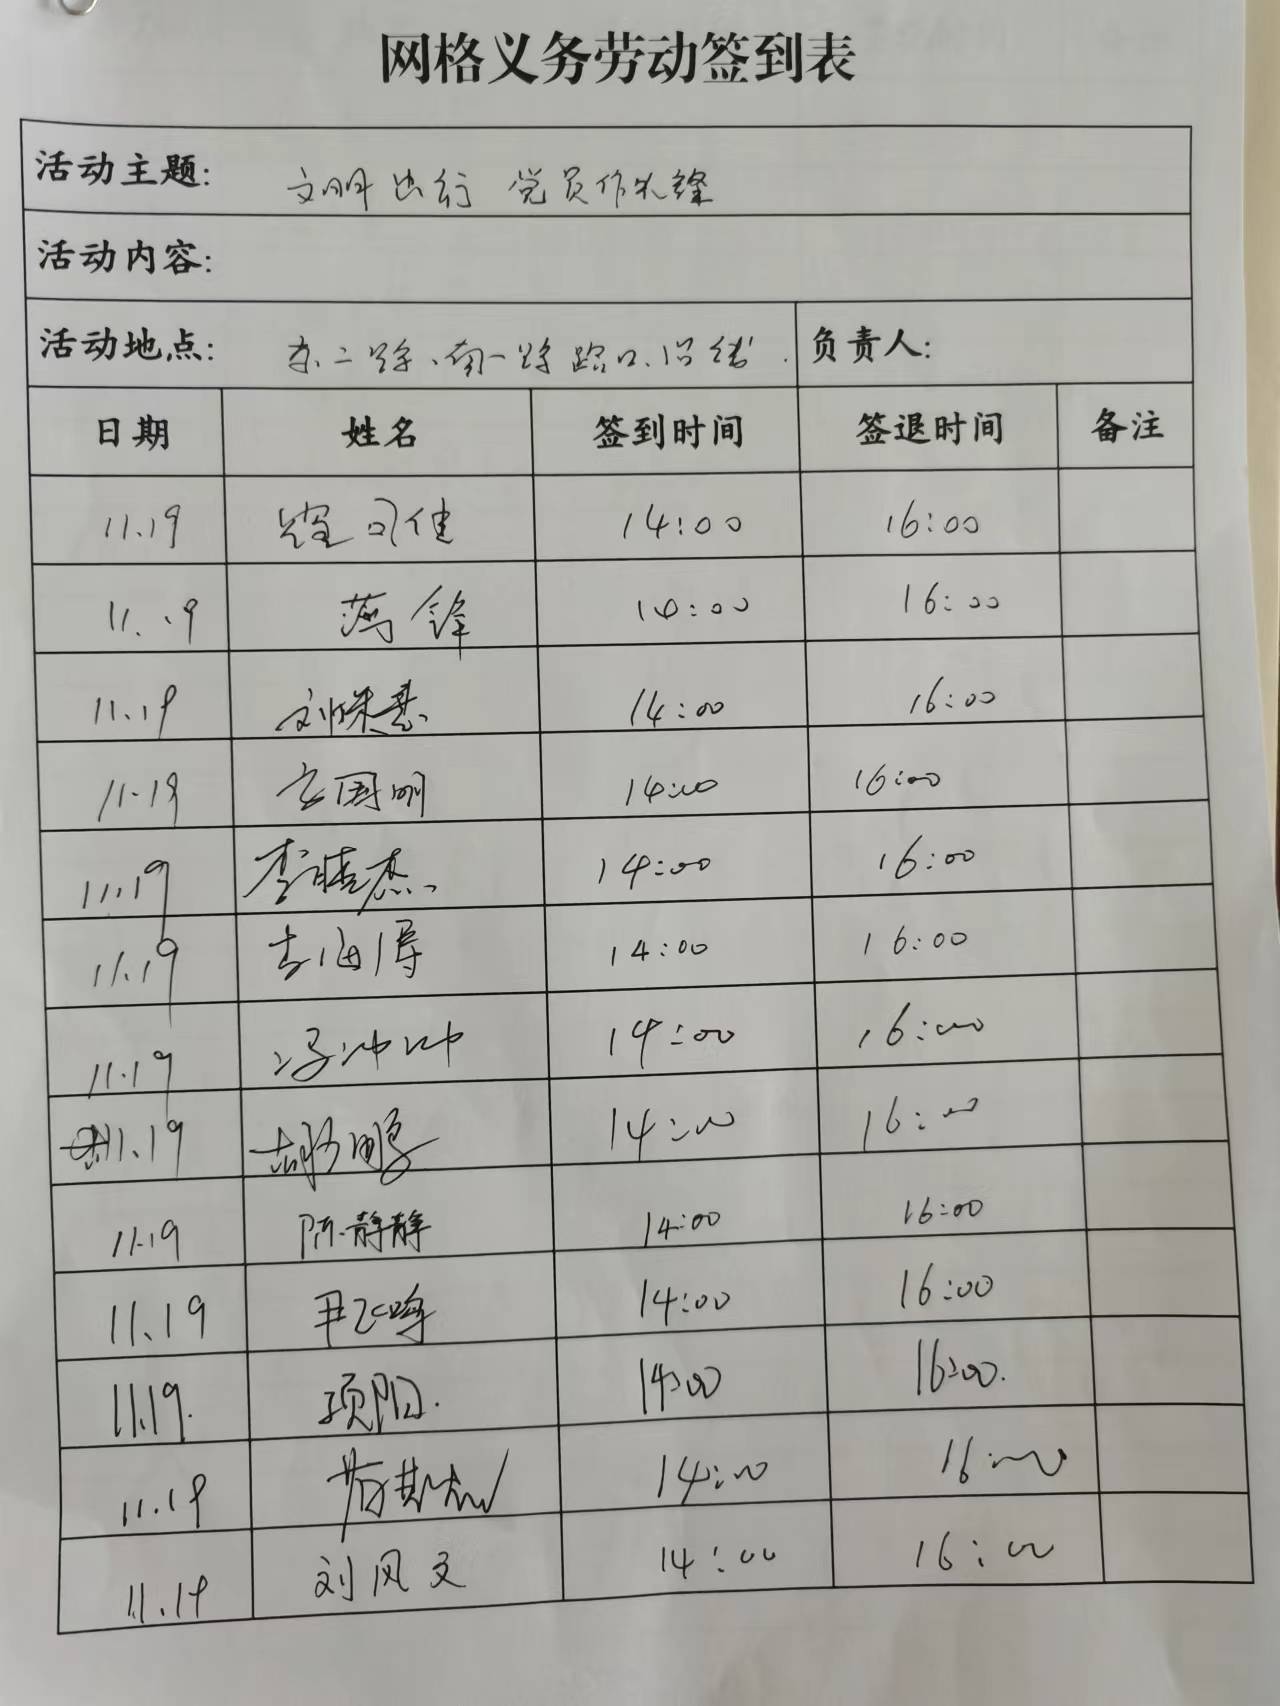 网格义务劳动签到表
活动主题: 文明出行 党员作先锋
活动内容:
活动地点: 东二路、南一路路口、沿线. 负责人:
日期 姓名 签到时间 签退时间 备注
11.19 14:00 16:00
11.19 锋 14:00 16:00
11.19 刘 14:00 16:00
11.19 国明 14:00 16:00
11.19 李晓杰 14:00 16:00
11.19 李海涛 14:00 16:00
11.19 冯冲冲 14:00 16:00
11.19 鹏 14:00 16:00
11.19 陈静静 14:00 16:00
11.19 尹飞鸣 14:00 16:00
11.19. 项阳. 14:00 16:00.
11.19 14:00 16:00
11.19 刘风文 14:00 16:00